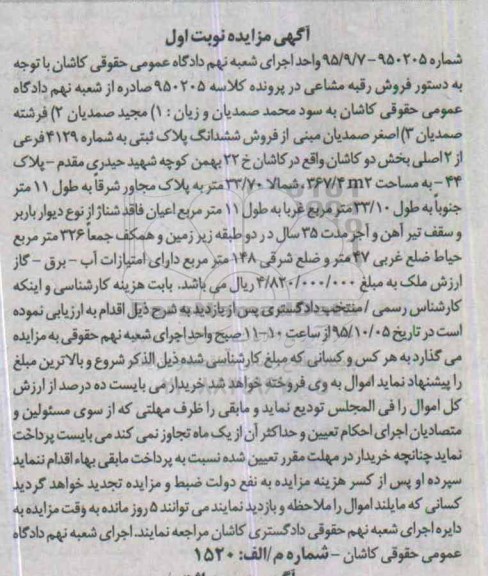 آگهی مزایده نوبت اول
شماره ۹۵۰۲۰۵-۹۵/۹/۷ واحد اجرای شعبه نهم دادگاه عمومی حقوقی کاشان با توجه
به دستور فروش رقبه مشاعی در پرونده کلاسه ۹۵۰۲۰۵ صادره از شعبه نهم دادگاه
عمومی حقوقی کاشان به سود محمد صمدیان و زیان : ۱) مجید صمدیان ۲) فرشته
صمدیان ۳) اصغر صمدیان مبنی از فروش ششدانگ پلاک ثبتی به شماره ۴۱۲۹ فرعی
از ۲ اصلی بخش دو کاشان واقع در کاشان خ ۲۲ بهمن کوچه شهید حیدری مقدم - پلاک
۴۴ - به مساحت ۳۶۷/۴m۲، شمالا ۳۳/۷۰ متر به پلاک مجاور شرقاً به طول ۱۱ متر
جنوباً به طول ۳۳/۱۰ متر مربع غربا به طول ۱۱ متر مربع اعیان فاقد شناژ از نوع دیوار باربر
و سقف تیر آهن و آجر مدت ۳۵ سال در دو طبقه زیر زمین و همکف جمعاً ۳۲۶ متر مربع
حیاط ضلع غربی ۴۷ متر و ضلع شرقی ۱۴۸ متر مربع دارای امتیازات آب - برق - گاز
ارزش ملک به مبلغ ۴/۸۲۰/۰۰۰/۰۰۰ ریال می باشد. بابت هزینه کارشناسی و اینکه
کارشناس رسمی / منتخب دادگستری پس از بازدید به شرح ذیل اقدام به ارزیابی نموده
است در تاریخ ۹۵/۱۰/۰۵ از ساعت ۱۰-۱۱ صبح واحد اجرای شعبه نهم حقوقی به مزایده
می گذارد به هر کس و کسانی که مبلغ کارشناسی شده ذیل الذکر شروع و بالاترین مبلغ
را پیشنهاد نماید اموال به وی فروخته خواهد شد خریدار می بایست ده درصد از ارزش
کل اموال را فی المجلس تودیع نماید و مابقی را ظرف مهلتی که از سوی مسئولین و
متصادیان اجرای احکام تعیین و حداکثر آن از یک ماه تجاوز نمی کند می بایست پرداخت
نماید چنانچه خریدار در مهلت مقرر تعیین شده نسبت به پرداخت مابقی بهاء اقدام ننماید
سپرده او پس از کسر هزینه مزایده به نفع دولت ضبط و مزایده تجدید خواهد گردید
کسانی که مایلند اموال را ملاحظه و بازدید نمایند می توانند ۵ روز مانده به وقت مزایده به
دایره اجرای شعبه نهم حقوقی دادگستری کاشان مراجعه نمایند. اجرای شعبه نهم دادگاه
عمومی حقوقی کاشان - شماره م/الف: ۱۵۲۰